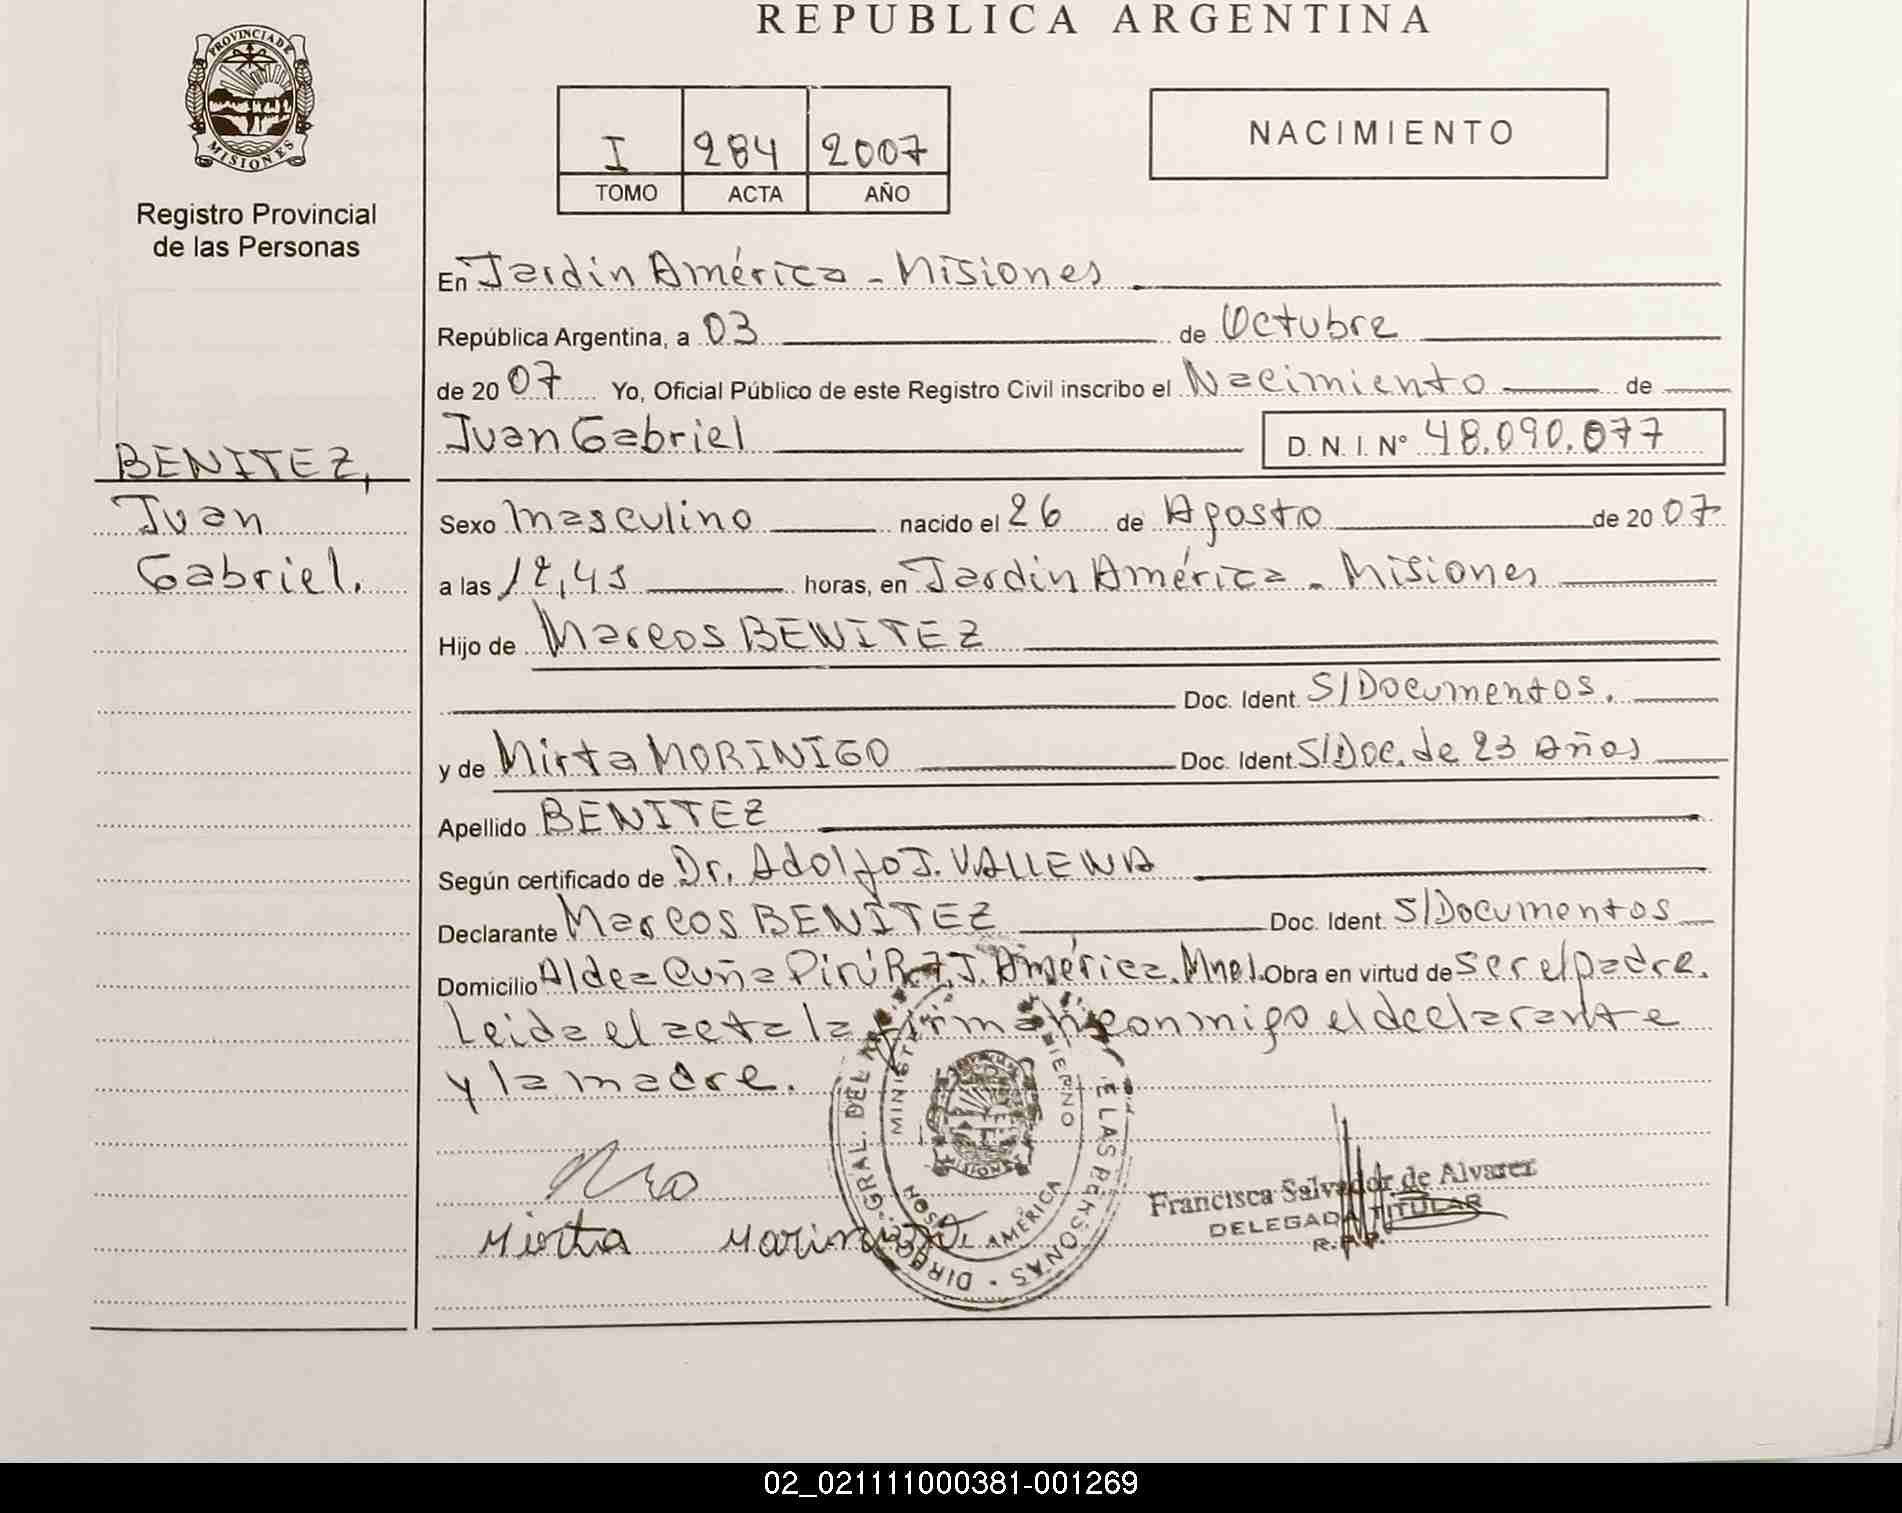 REPUBLICA ARGENTINA
PROVINCIA DE
MISIONES
Registro Provincial
de las Personas
I 284 2007
TOMO ACTA AÑO
NACIMIENTO
En Jardín América - Misiones
República Argentina, a 03 de Octubre
de 2007 Yo, Oficial Público de este Registro Civil inscribo el Nacimiento de
Juan Gabriel D. N. I. N° 48.090.077
BENITEZ,
Juan
Gabriel.
Sexo Masculino nacido el 26 de Agosto de 2007
a las 12,45 horas, en Jardín América - Misiones
Hijo de Marcos BENITEZ
Doc. Ident. S/Documentos.
y de Mirta MORINIGO Doc. Ident. S/Doc. de 23 Años
Apellido BENITEZ
Según certificado de Dr. Adolfo J. VALLEWA
Declarante Marcos BENITEZ Doc. Ident. S/Documentos
Domicilio Aldea Cuña Pirú R. 7, J. América, Mnes. Obra en virtud de ser el padre.
Leida el acta la firman conmigo el declarante
y la madre.
Mirta
Francisca Salvador de Alvarez
DELEGADA TITULAR
R.P.P.
02_021111000381-001269